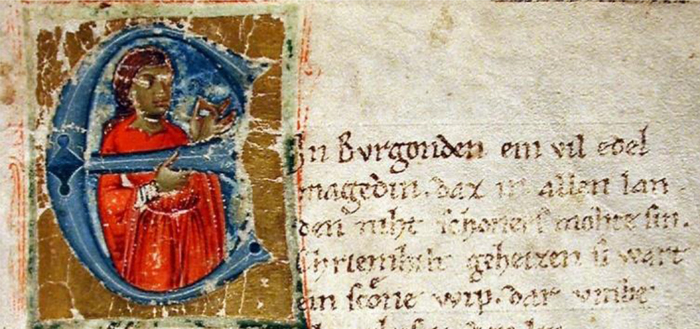 E
In Bvrgonden ein vil edel
magedin. daz in allen lan-
den niht schoners mohte sin.
Chriemhilt geheizen si wart
ein scœne wip. dar vmbe